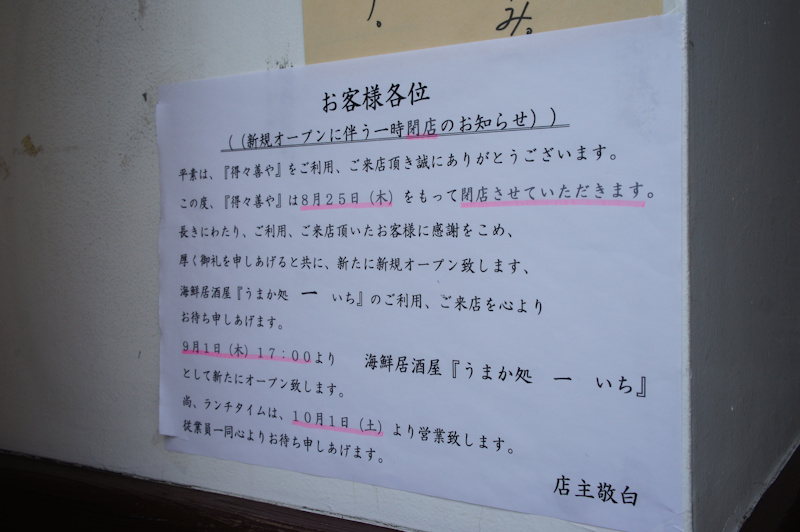 す。
み。
お客様各位
（（新規オープンに伴う一時閉店のお知らせ））
平素は、『得々善や』をご利用、ご来店頂き誠にありがとうございます。
この度、『得々善や』は８月２５日（木）をもって閉店させていただきます。
長きにわたり、ご利用、ご来店頂いたお客様に感謝をこめ、
厚く御礼を申しあげると共に、新たに新規オープン致します、
海鮮居酒屋『うまか処　一　いち』のご利用、ご来店を心より
お待ち申しあげます。
９月１日（木）１７：００より　海鮮居酒屋『うまか処　一　いち』
として新たにオープン致します。
尚、ランチタイムは、１０月１日（土）より営業致します。
従業員一同心よりお待ち申しあげます。
店主敬白